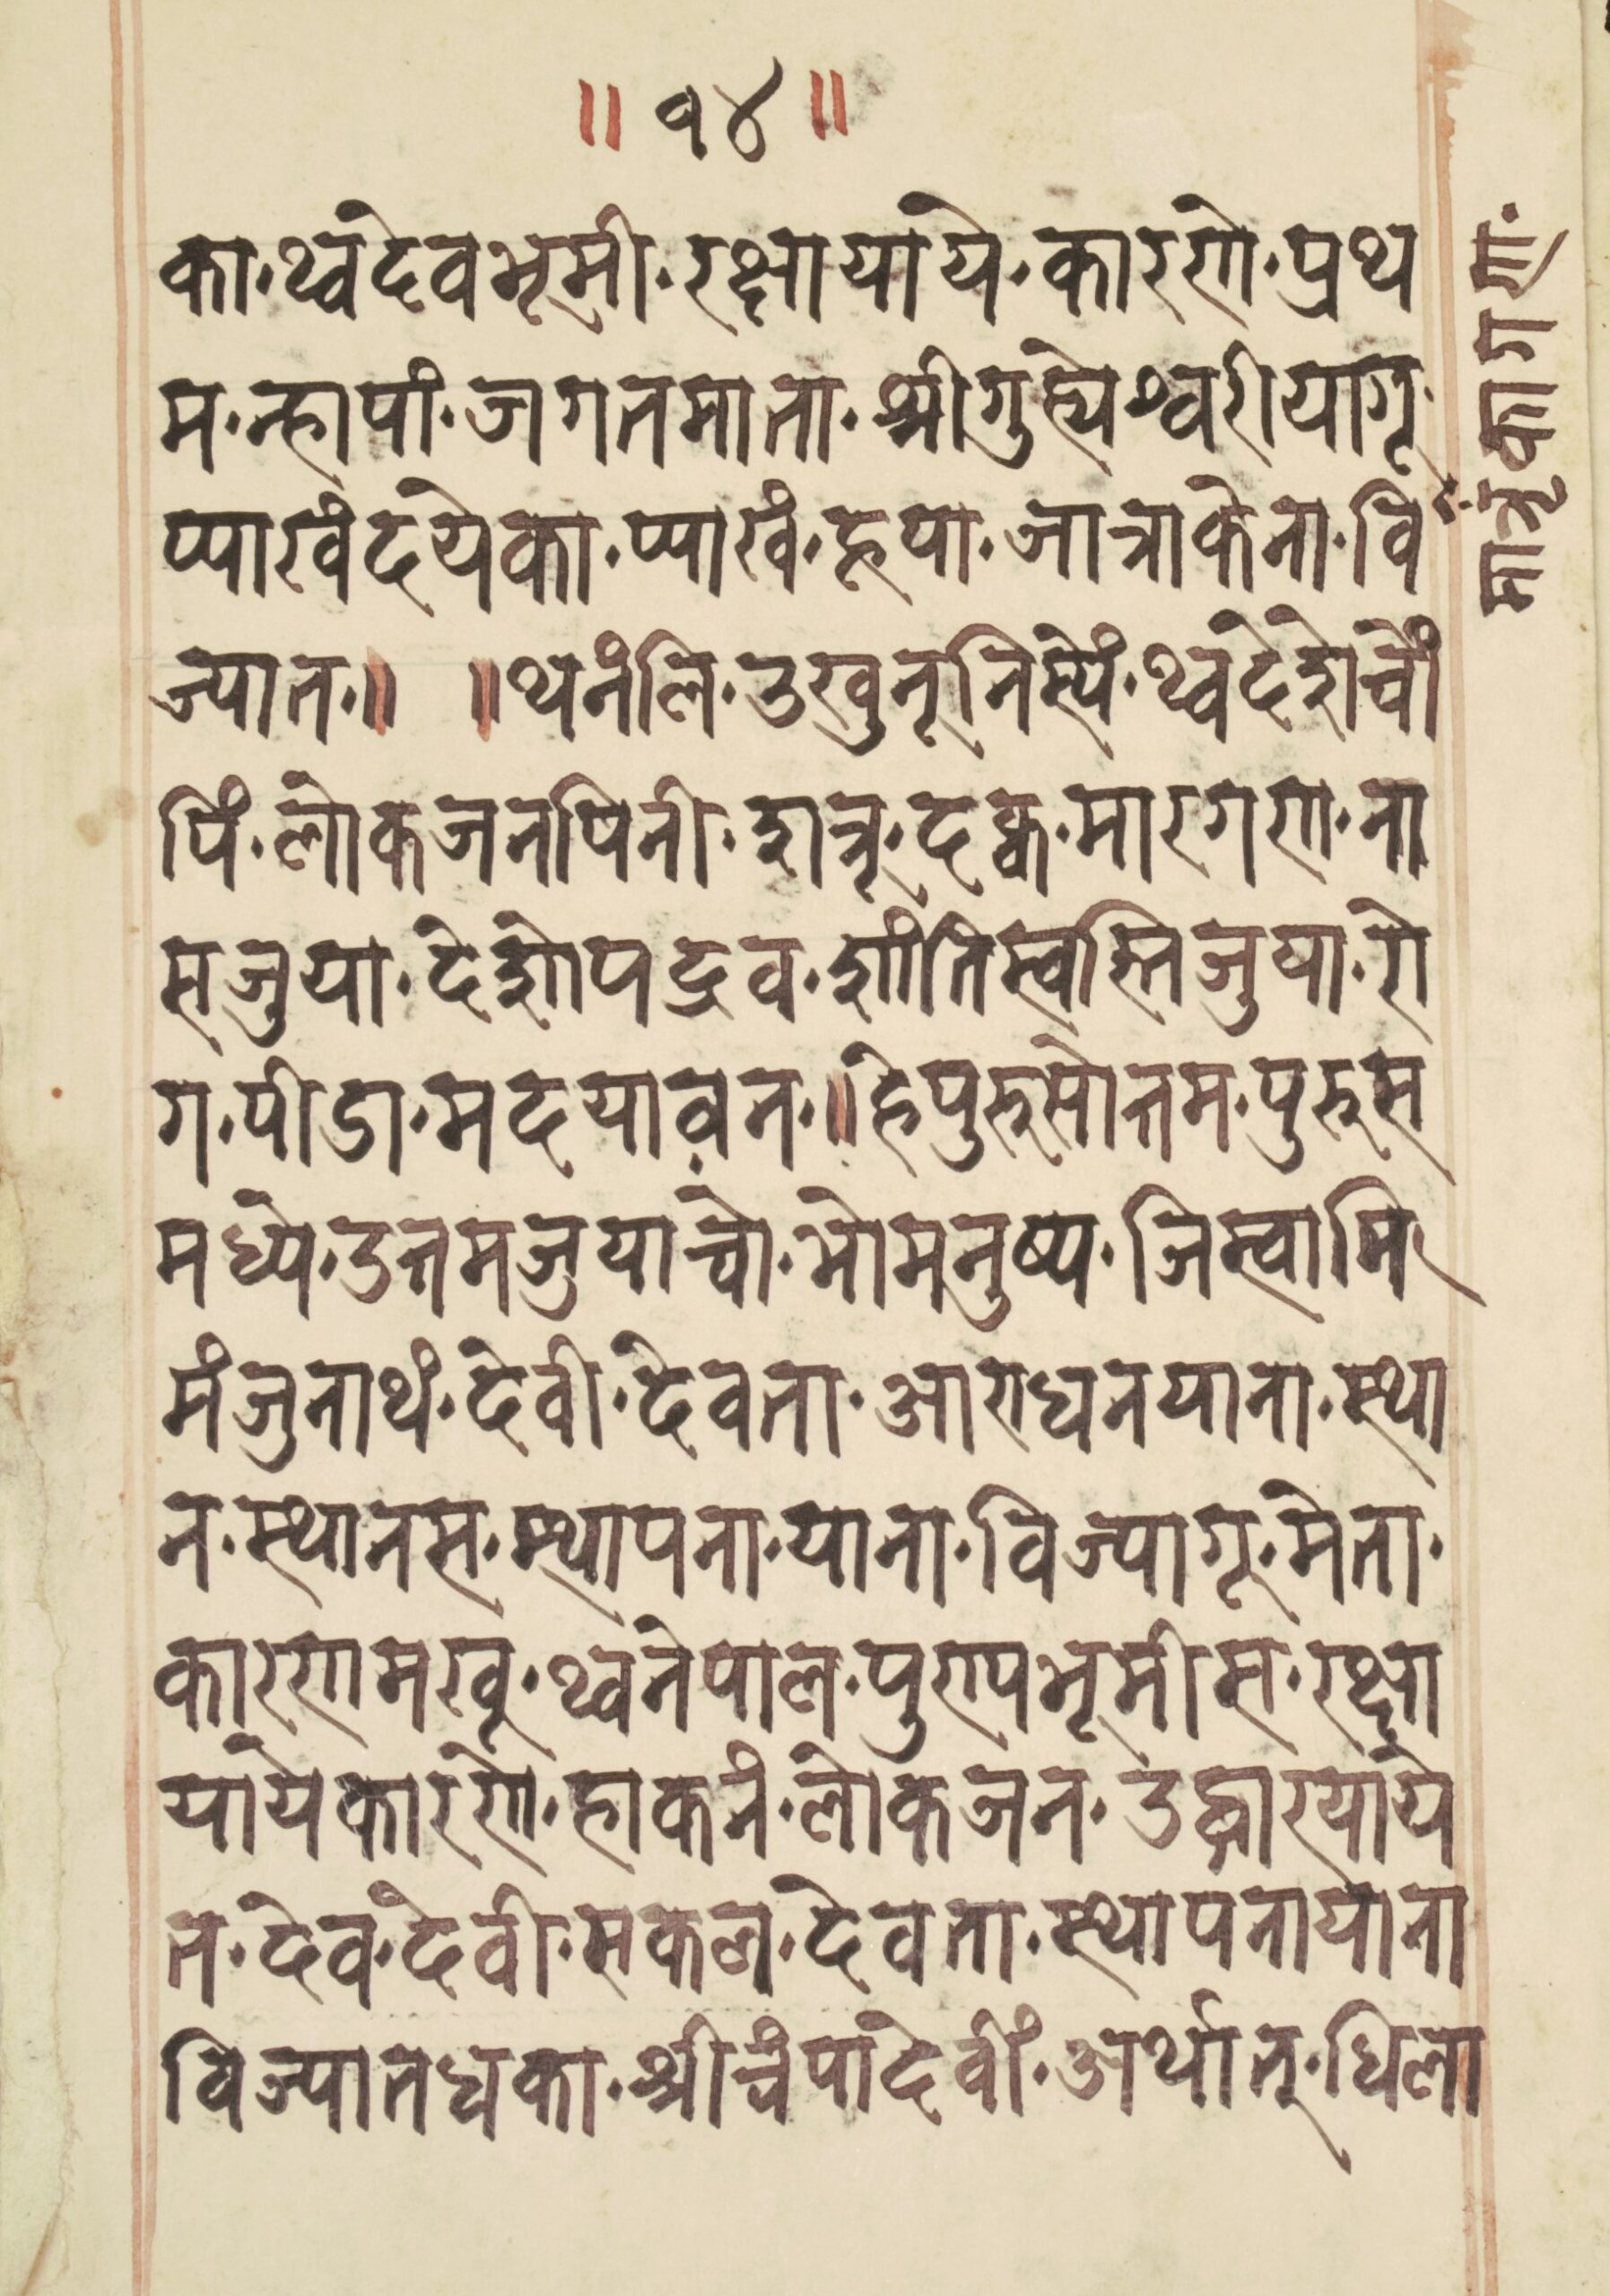 ॥ १४ ॥
का·थ्वदेवभूमी·रक्षायाये·कारणे·प्रथ
म·न्हापां·जगतमाता·श्रीगुह्येश्वरीयागू·
प्याखंदयेका·प्याखं·हूपा·जात्राकेना·वि
ज्यात·॥ ॥थनंलि·उखुनूनिस्यें·थ्वदेशेचों
पिं·लोकजनपिनी·शत्रू·दक्व·मारगण·ना
सजुया·देशोपद्रव·शांतिस्वस्तिजुया·रो
ग·पीडा·मदयावन·॥हेपुरुसोत्तम·पुरुस
मध्ये·उत्तमजुयाच्वो·भोमनुष्य·जिस्वामि
मंजुनाथं·देवी·देवता·आराधनयाना·स्था
न·स्थानस·स्थापना·याना·विज्यागू·मेता·
कारणमखू·थ्वनेपाल·पुण्यभूमीस·रक्षा
यायेकारणे·हाकनं·लोकजन·उद्धारयाये
त·देव·देवी·सकल·देवता·स्थापनायाना
विज्यातधका·श्रीचंपादेवीं·अर्थात्·धिला
मात्रृकागण·